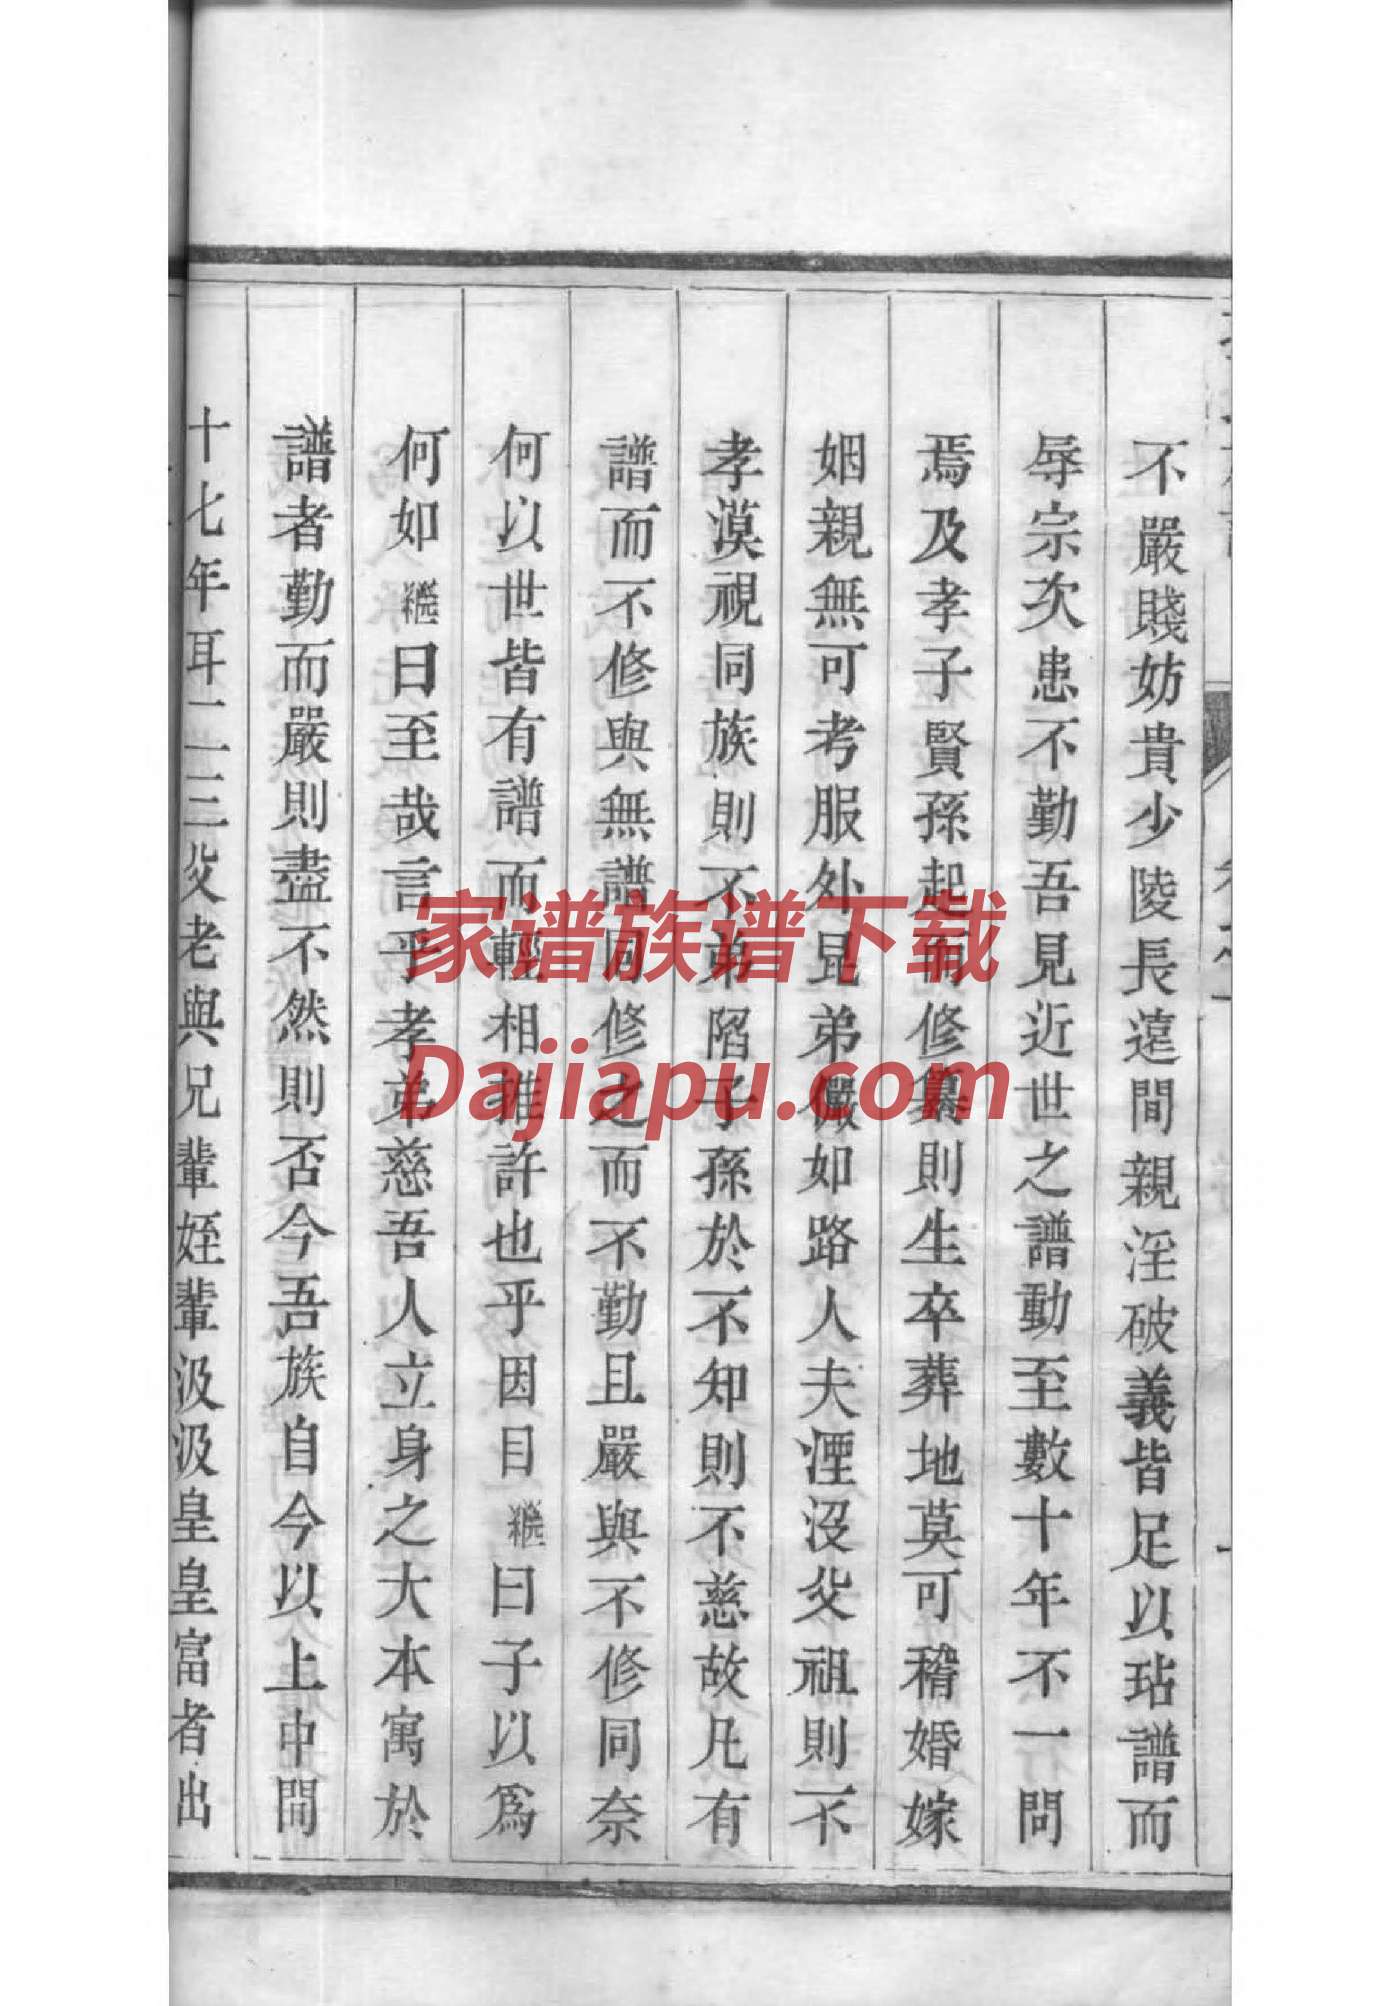 不嚴賤妨貴少陵長遠間親淫破義皆足以玷譜而
辱宗次患不勤吾見近世之譜動至數十年不一問
焉及孝子賢孫起而修纂則生卒葬地莫可稽婚嫁
姻親無可考服外昆弟儼如路人夫湮沒父祖則不
孝漠視同族則不弟陷子孫於不知則不慈故凡有
譜而不修與無譜同修之而不勤且嚴與不修同奈
何以世皆有譜而輕相推許也乎因目繼曰子以爲
何如繼曰至哉言乎孝弟慈吾人立身之大本寓於
譜者勤而嚴則盡不然則否今吾族自今以上中間
十七年耳一二三父老與兄輩姪輩汲汲皇皇富者出
家谱族谱下载
Dajiapu.com